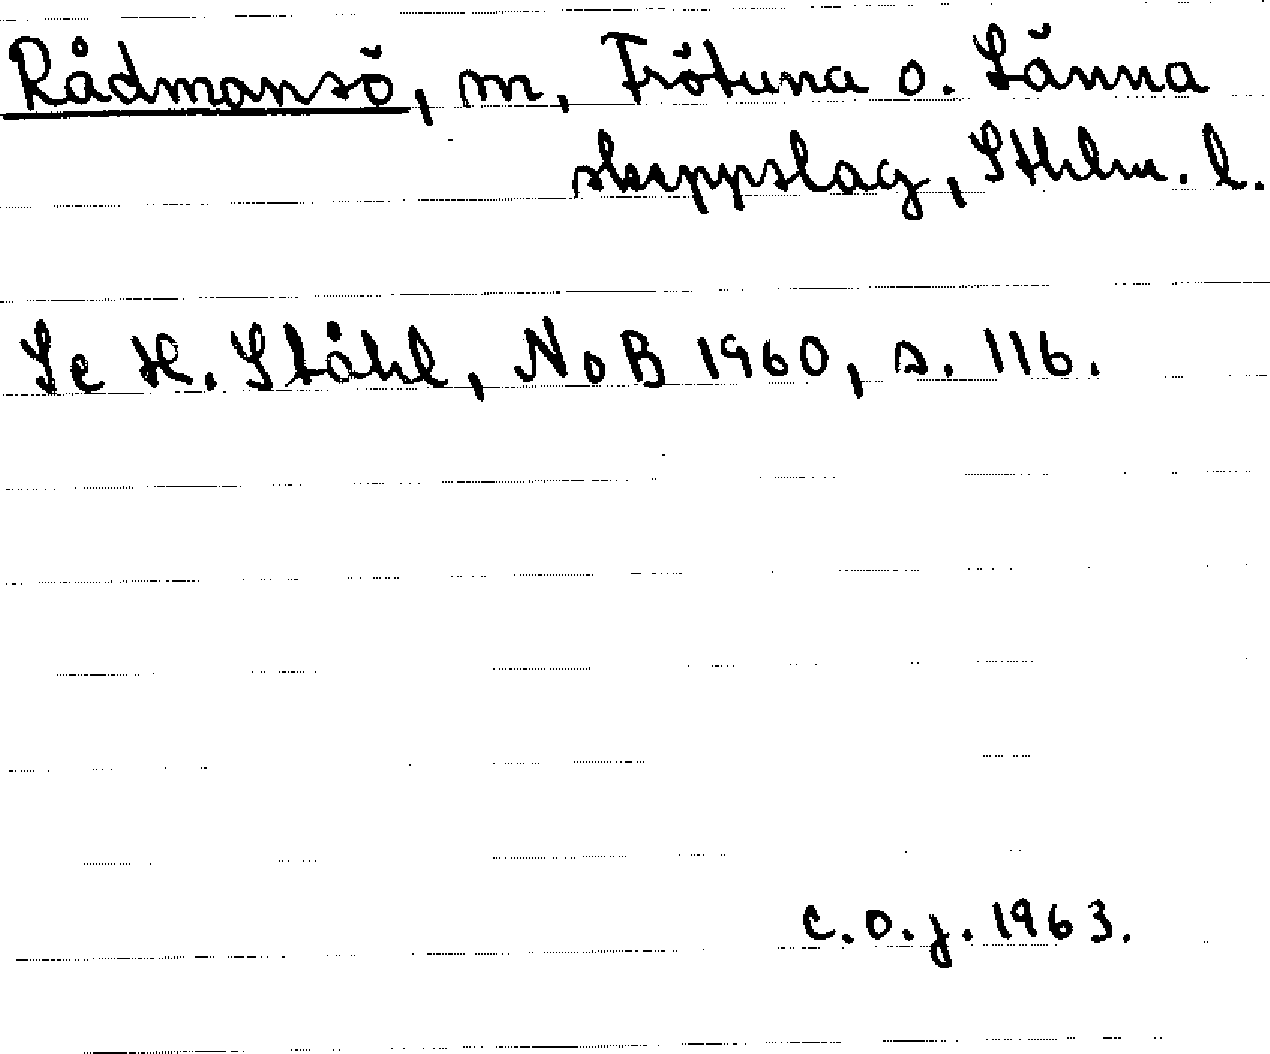 Rådmansö, sn, Frötuna o. Länna
skeppslag, Sthlm. l.
Se H. Ståhl, NoB 1960, s. 116.
C.O.J. 1963.